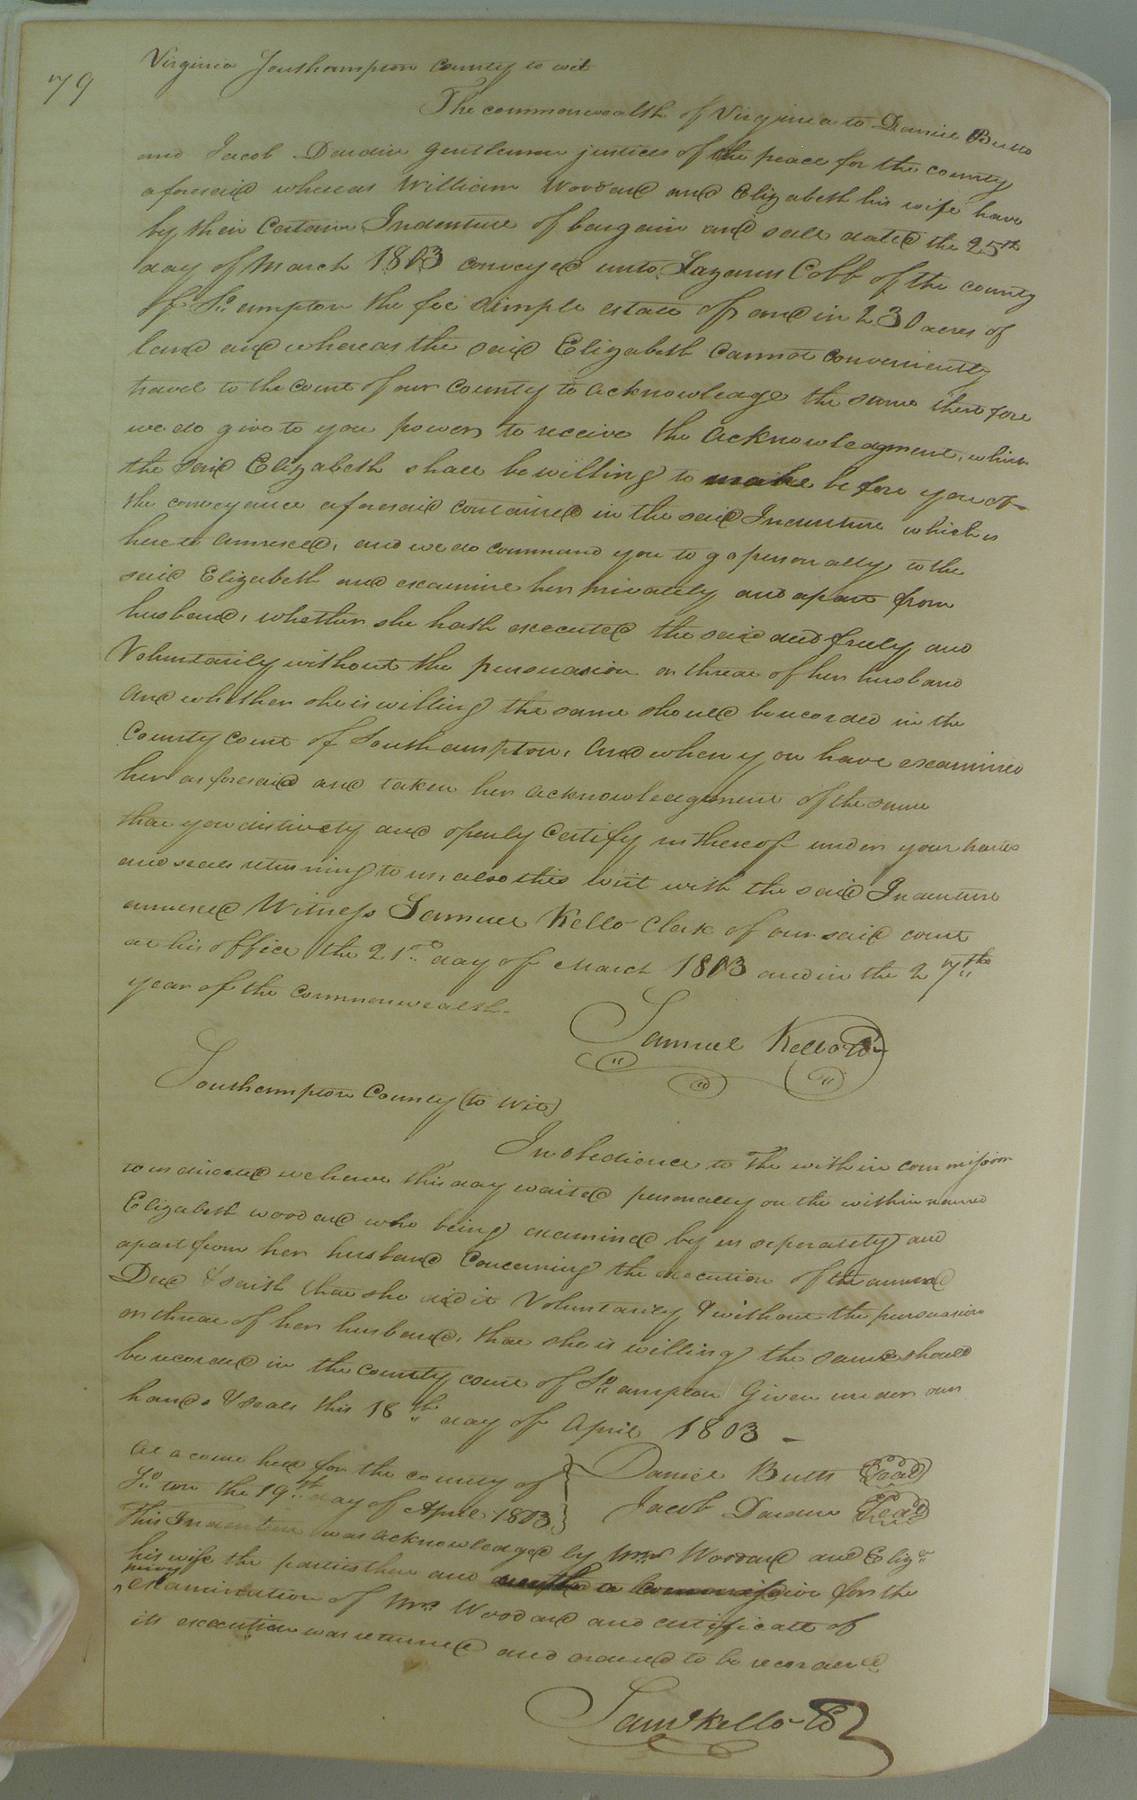 79
Virginia Southampton County to wit
The commonwealth of Virginia to Daniel Butts
and Jacob Darden Gentlemen justices of the peace for the county
aforesaid whereas William Woodard and Elizabeth his wife have
by their Certain Indenture of bargain and sale dated the 25th
day of March 1803 conveyed unto Lazarus Cobb of the county
of So. ampton the fee simple estate of and in 230 acres of
land and whereas the said Elizabeth Cannot conveniently
travel to the court of our County to acknowledge the same therefore
we do give to you power to receive the acknowledgment, which
the said Elizabeth shall be willing to make before you of
the conveyance aforesaid contained in the said Indenture which is
hereto annexed, and we do command you to go personally to the
said Elizabeth and examine her privately and apart from
husband, whether she hath executed the said deed freely and
Voluntarily without the persuasion or threat of her husband
and whether she is willing the same should be recorded in the
County Court of Southampton, And when you have examined
her as foresaid and taken her acknowledgment of the same
that you distinctly and openly Certify us thereof under your hands
and seals returning to us, also this writ with the said Indenture
annexed Witness Samuel Kello Clerk of our said court
at his office the 21st day of March 1803 and in the 27th
year of the Commonwealth.
Samuel Kello Co
Southampton County (to wit)
In obedience to the within commission
to us directed we have this day waited personally on the within named
Elizabeth woodard who being examined by us seperately and
apart from her husband Concerning the execution of the annexed
Deed & saith that she did it Voluntarily & without the persuasion
or threat of her husband, that she is willing the same should
be recorded in the county court of So. ampton Given under our
hands & seals this 18th day of April 1803 -
Daniel Butts (Seal)
Jacob Darden (Seal)
At a court held for the county of
So. ton the 19th day of April 1803
This Indenture was acknowledged by Wm. Woodard and Eliza.
his wife the parties thereto and a Commission for the
privy
examination of Mrs. Woodard and certificate of
its execution was returned and ordered to be recorded
Saml Kello Co